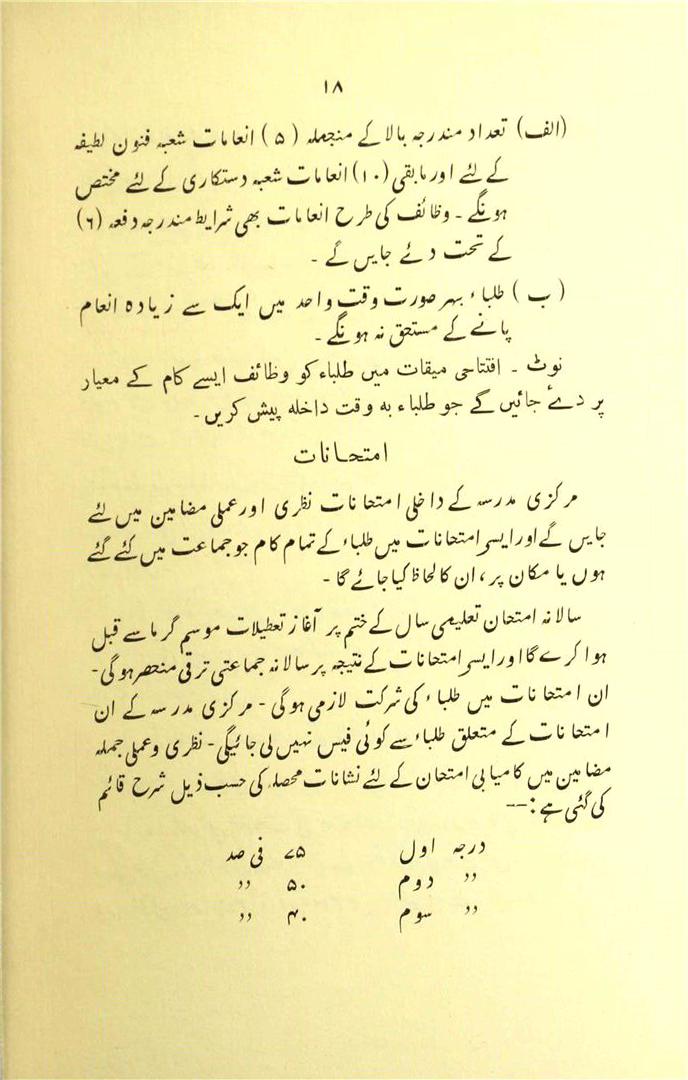 ۱۸
(الف) تعداد مندرجہ بالا کے منجملہ (۵) انعامات شعبہ فنون لطیفہ
کے لئے اور مابقی (۱۰) انعامات شعبہ دستکاری کے لئے مختص
ہونگے ۔ وظائف کی طرح انعامات بھی شرایط مندرجہ دفعہ (۶)
کے تحت دئے جایں گے ۔
(ب) طلباء بہر صورت وقت واحد میں ایک سے زیادہ انعام
پانے کے مستحق نہ ہونگے ۔
نوٹ ۔ افتتاحی میقات میں طلباء کو وظائف ایسے کام کے معیار
پر دےٴ جائیں گے جو طلباء بہ وقت داخلہ پیش کریں ۔
امتحانات
مرکزی مدرسہ کے داخلی امتحانات نظری اور عملی مضامین میں لئے
جایں گے اور ایسے امتحانات میں طلباء کے تمام کام جو جماعت میں کئے گئے
ہوں یا مکان پر ، ان کا لحاظ کیا جائے گا ۔
سالانہ امتحان تعلیمی سال کے ختم پر آغاز تعطیلات موسم گرما سے قبل
ہوا کرے گا اور ایسے امتحانات کے نتیجہ پر سالانہ جماعتی ترقی منحصر ہوگی ۔
ان امتحانات میں طلباء کی شرکت لازمی ہوگی ۔ مرکزی مدرسہ کے ان
امتحانات کے متعلق طلباء سے کوئی فیس نہیں لی جائیگی ۔ نظری و عملی جملہ
مضامین میں کامیابی امتحان کے لئے نشانات محصلہ کی حسب ذیل شرح قائم
کی گئی ہے :—
درجہ اول ۷۵ فی صد
〃 دوم ۵۰ 〃
〃 سوم ۴۰ 〃